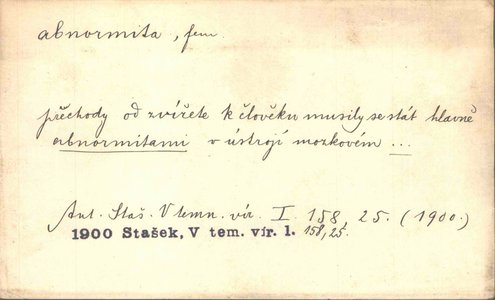 abnormita, fem.
přechody od zvířete k člověku musily se stát hlavně
abnormitami v ústrojí mozkovém ...
Ant. Staš. V temn. vír. I. 158, 25. (1900.)
1900 Stašek, V tem. vír. 1. 158,25.